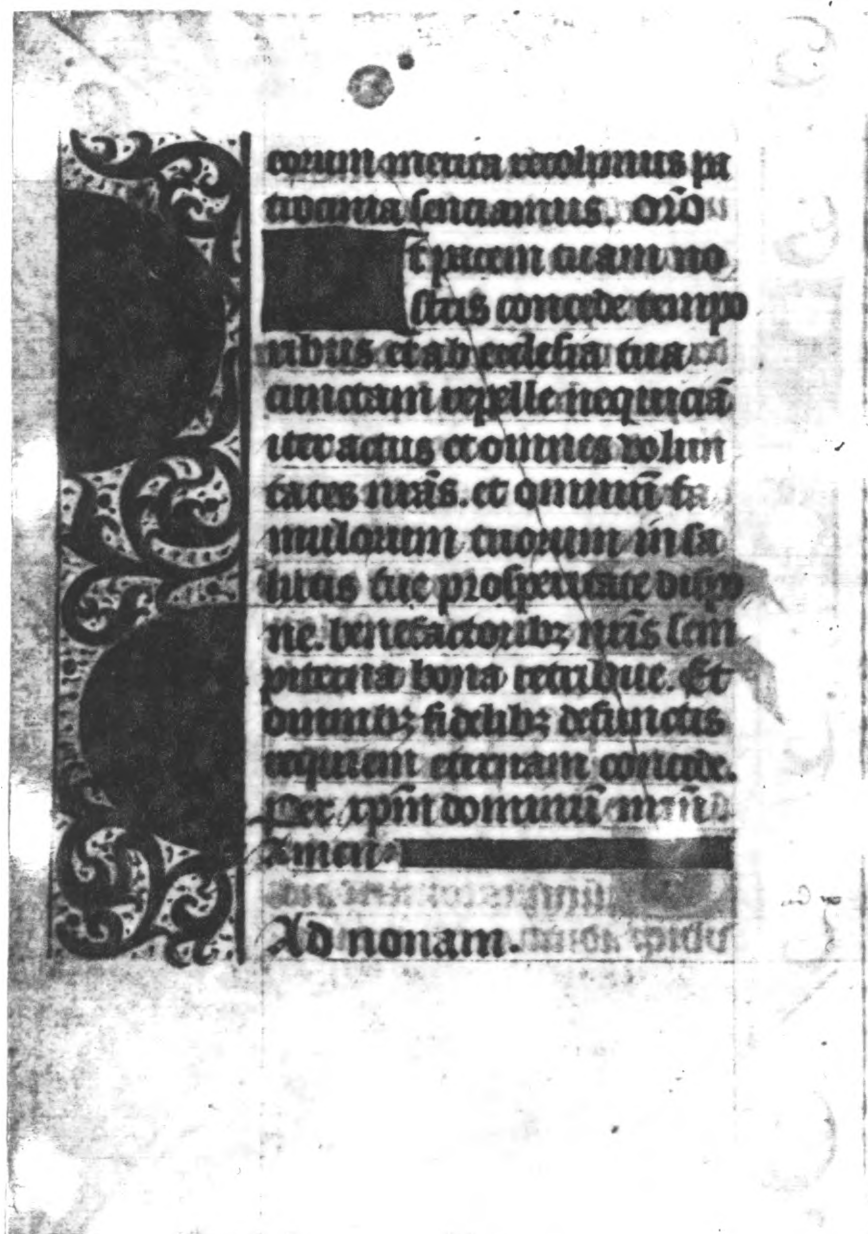 eorum merita recolimus pa
trocinia senciamus. Orõ
t pacem tuam no
stris concede tempo
ribus et ab ecclesia tua
cunctam repelle nequiciã
iter actus et omnes volun
tates nr̃as. et omniũ fa
mulorum tuorum in sa
lutis tue prosperitate dispo
ne. benefactoribꝫ nr̃is sem
piterna bona retribue. Et
omnibꝫ fidelibꝫ defunctis
requiem eternam concede.
Per xp̃m dominũ nr̃m
Amen.
Ad nonam.